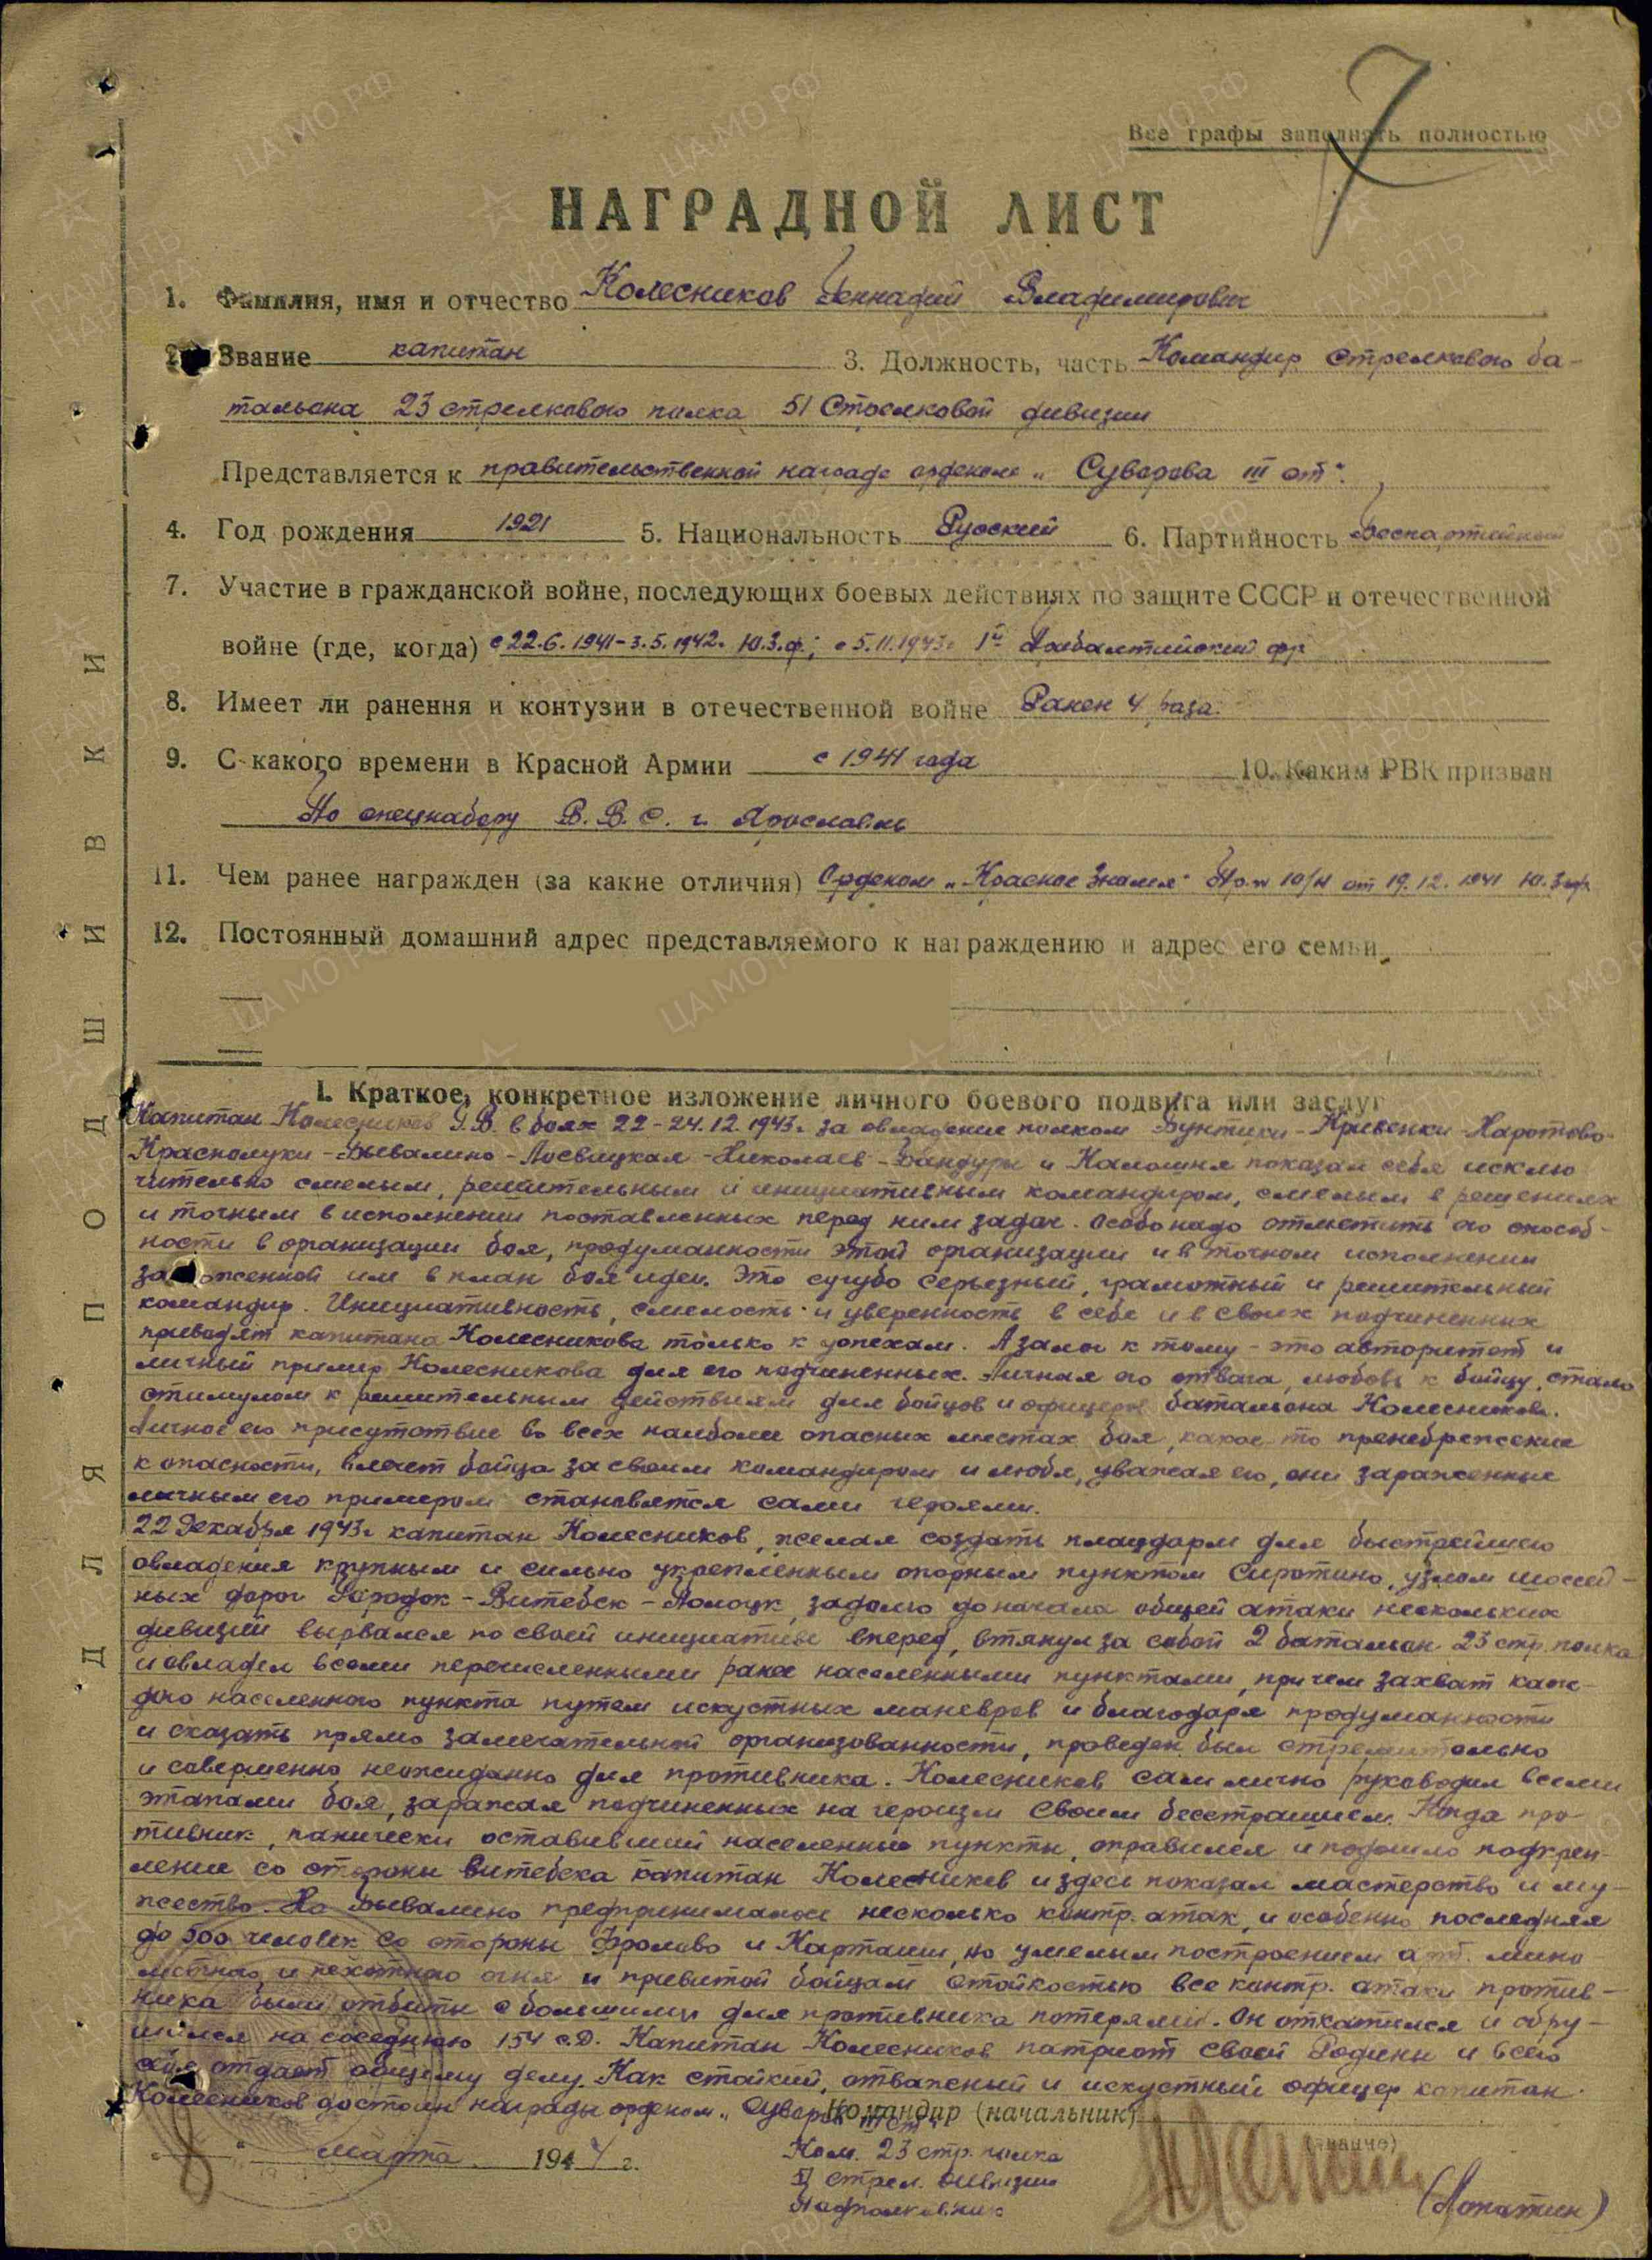 7
Все графы заполнять полностью
НАГРАДНОЙ ЛИСТ
1. Фамилия, имя и отчество Колесников Геннадий Владимирович
2. Звание капитан 3. Должность, часть Командир стрелкового ба-
тальона 23 стрелкового полка 51 Стрелковой дивизии
Представляется к правительственной награде орденом „Суворова III ст“.
4. Год рождения 1921 5. Национальность Русский 6. Партийность Беспартийный
7. Участие в гражданской войне, последующих боевых действиях по защите СССР и отечественной
войне (где, когда) с 22.6.1941-3.5.1942г. Ю.З.ф.; с 5.11.1943г. 1й Прибалтийский фр
8. Имеет ли ранения и контузии в отечественной войне Ранен 4 раза.
9. С какого времени в Красной Армии с 1941 года 10. Каким РВК призван
По спецнабору В.В.С. г. Ярославль
11. Чем ранее награжден (за какие отличия) Орденом „Красное Знамя“ Пр.№ 10/н от 19.12.1941 Ю.З.фр.
12. Постоянный домашний адрес представляемого к награждению и адрес его семьи
I. Краткое, конкретное изложение личного боевого подвига или заслуг
Капитан Колесников Г.В. в боях 22-24.12.1943г. за овладение полком - Кривенки -
- Дывалино - - Николаев - Бандуры и показал себя исклю
чительно смелым, решительным и инициативным командиром, смелым в решениях
и точным в исполнении поставленных перед ним задач. Особо надо отметить его способ-
ности в организации боя, продуманности этой организации и в точном исполнении
заложенной им в план боя идеи. Это сугубо серьезный, грамотный и решительный
командир. Инициативность, смелость и уверенность в себе и в своих подчиненных
приводят капитана Колесникова только к успехам. А залог к тому - это авторитет и
личный пример Колесникова для его подчиненных. Личная его отвага, любовь к бойцу, стало
стимулом к решительным действиям для бойцов и офицеров батальона Колесникова.
Личное его присутствие во всех наиболее опасных местах боя, какое-то пренебрежение
к опасности, влечет бойца за своим командиром и любя, уважая его, они зараженные
личным его примером становятся сами героями.
22 Декабря 1943г. капитан Колесников, желая создать плацдарм для быстрейшего
овладения крупным и сильно укрепленным опорным пунктом Сиротино, узлом шоссей-
ных дорог Городок - Витебск - Полоцк, задолго до начала общей атаки нескольких
дивизий вырвался по своей инициативе вперед, втянул за собой 2 батальон 23 стр. полка
и овладел всеми перечисленными ранее населенными пунктами, причем захват каж-
дого населенного пункта путем искустных маневров и благодаря продуманности
и сказать прямо замечательной организованности, проведен был стремительно
и совершенно неожиданно для противника. Колесников сам лично руководил всеми
этапами боя, заражая подчиненных на героизм своим бесстрашием. Когда про-
тивник, панически оставивший населенные пункты, оправился и подошло подкреп-
ление со стороны Витебска капитан Колесников и здесь показал мастерство и му-
жество. На Дывалино предпринималось несколько контр. атак, и особенно последняя
до 500 человек со стороны Фролово и Карташи, но умелым построением арт. мино
метного и пехотного огня и привитой бойцам стойкостью все контр. атаки против-
ника были отбиты с большими для противника потерями. Он откатился и обру-
шился на соседнюю 154 с.д. Капитан Колесников патриот своей Родины и всего
себя отдает общему делу. Как стойкий, отважный и искустный офицер капитан
Колесников достоин награды орденом „Суворова III ст“
Командир (начальник)
8 марта 1944 г.
Ком. 23 стр. полка
51 стрел. дивизии
Подполковник
(Лопатин)
ДЛЯ ПОДШИВКИ
ЦА МО РФ
ПАМЯТЬ НАРОДА